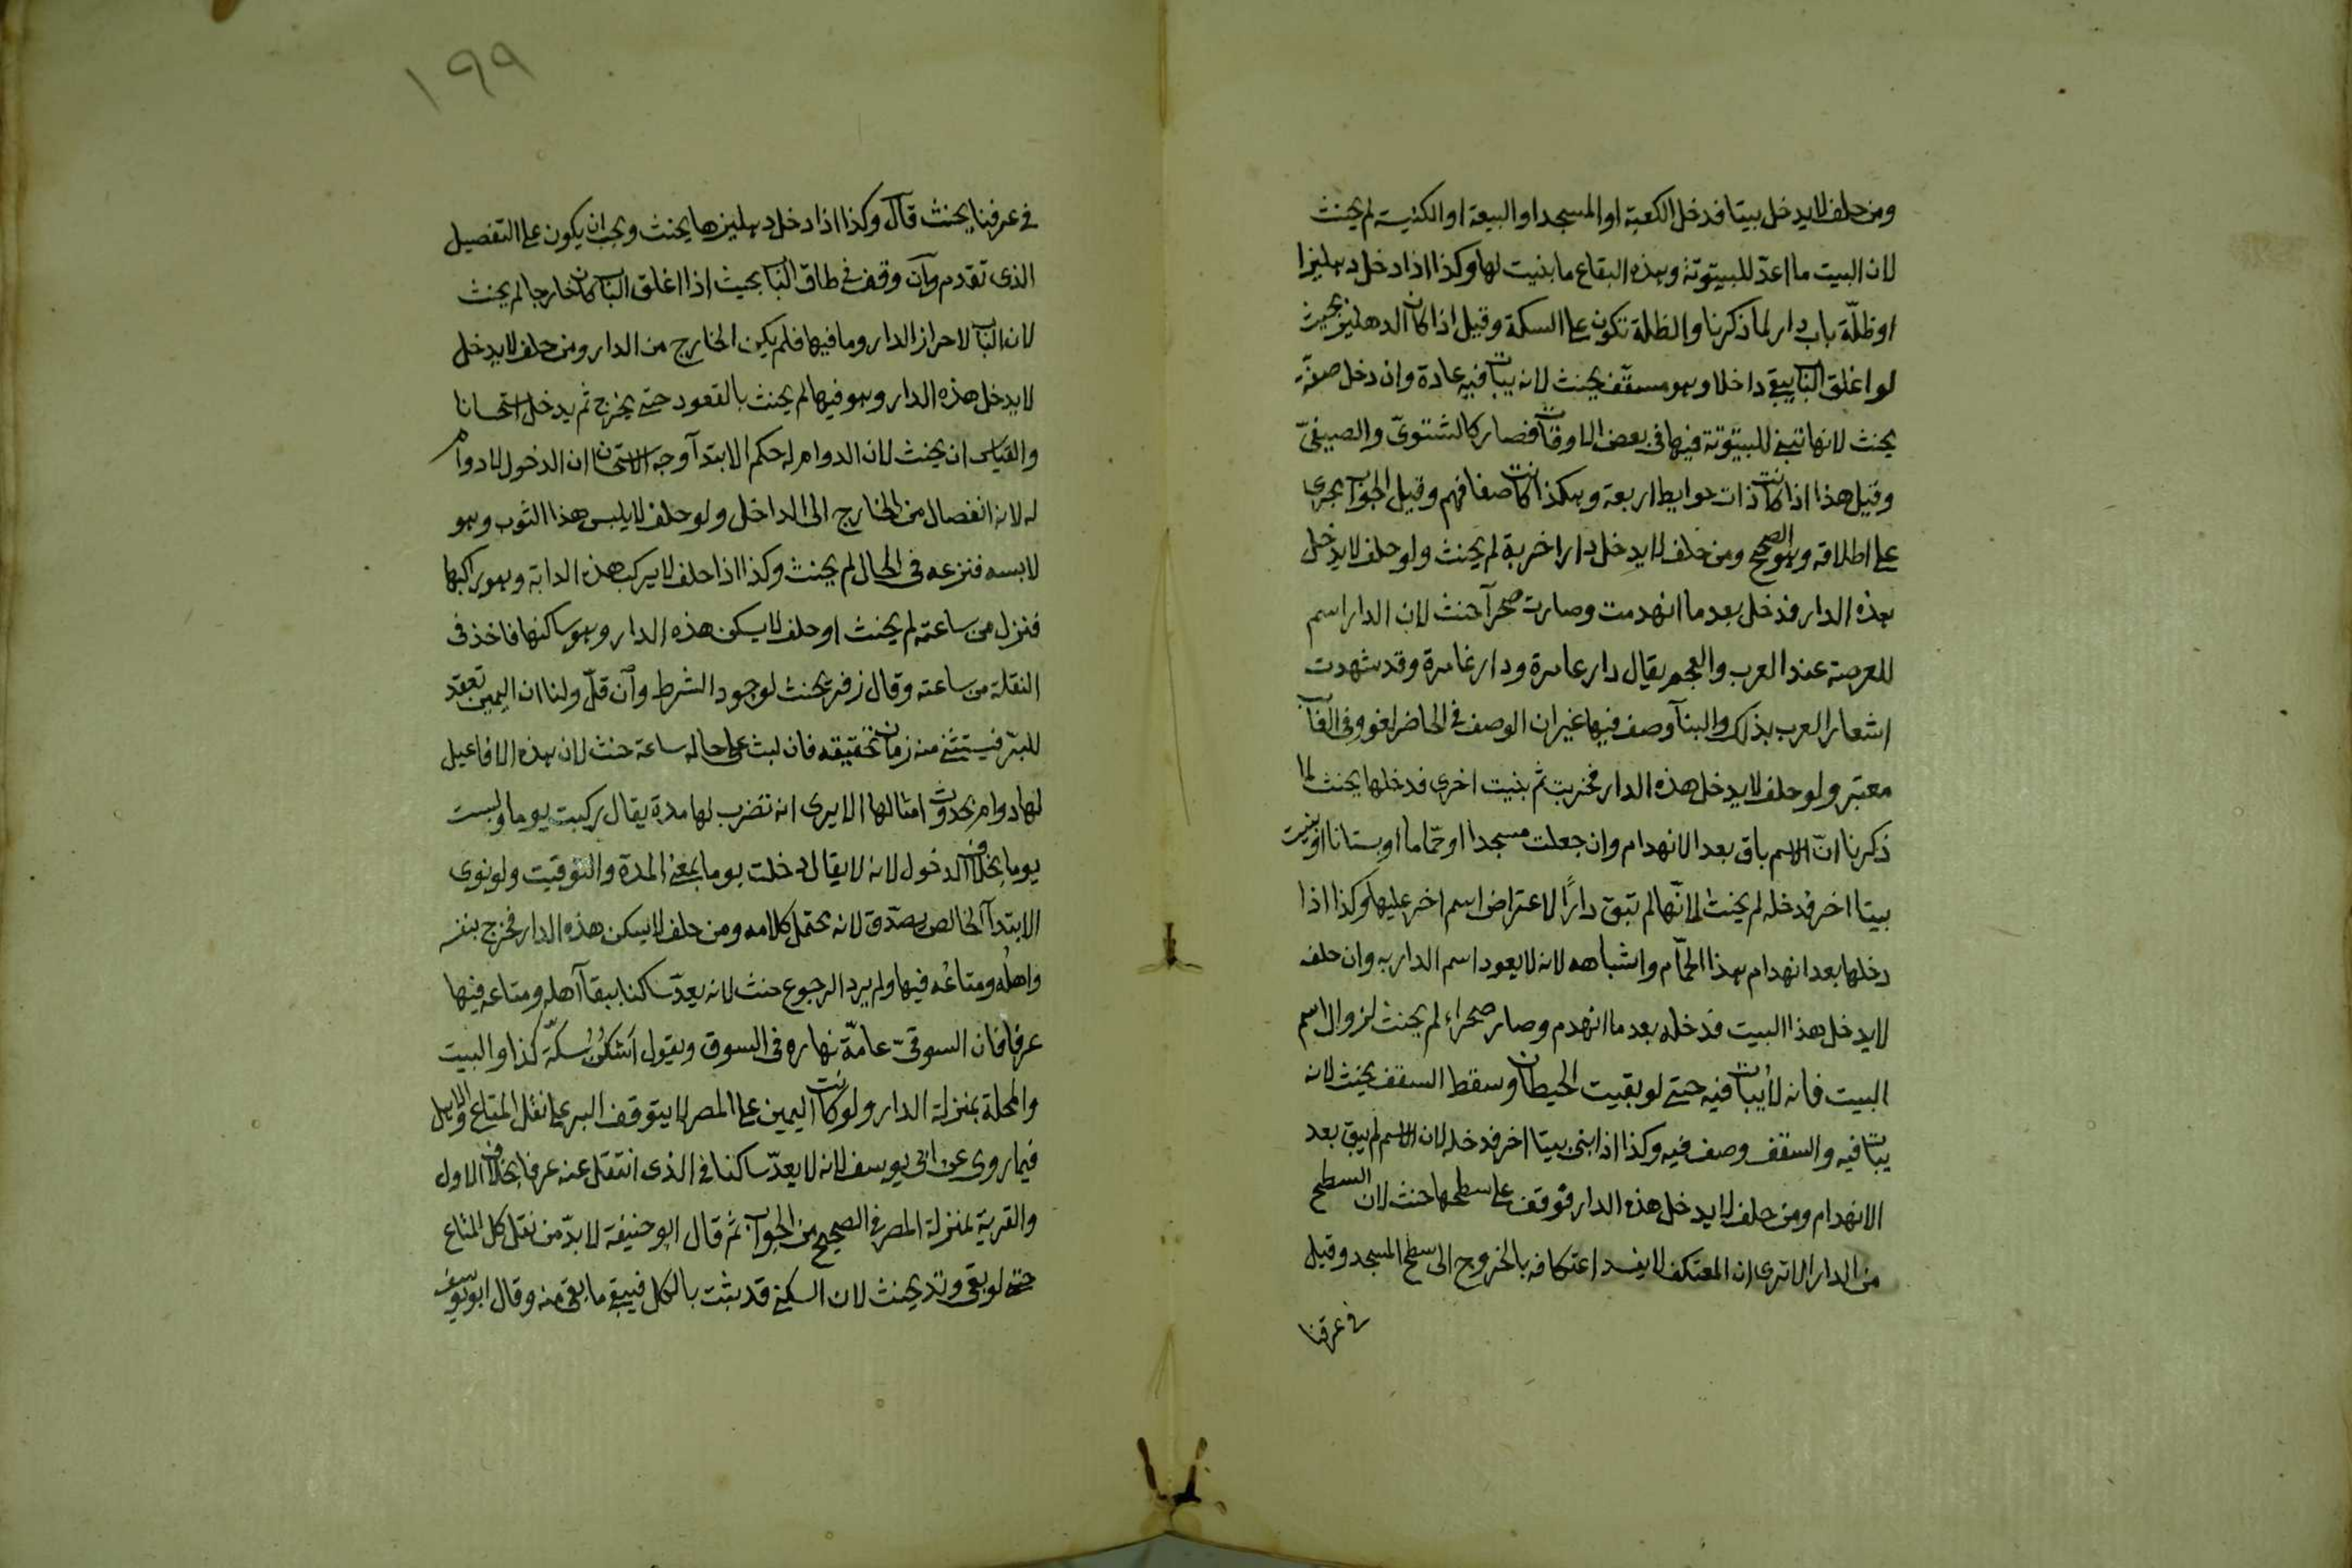 ومن حلف لا يدخل بيتا فدخل الكعبة او المسجد او البيعة او الكنيسة لم يحنث
لان البيت ما اعدّ للبيتوتة وهذه البقاع ما بنيت لها وكذا اذا دخل دهليزا
او ظلّة باب دار لما ذكرنا والظلة تكون على السكة وقيل اذا كان الدهليز بحيث
لو اغلق الباب يبقى داخلا وهو مسقّف يحنث لانه يبات فيه عادة وان دخل صفّة
يحنث لانها تبنى للبيتوتة فيها فى بعض الاوقات فصار كالشتوىّ والصيفىّ
وقيل هذا اذا كانت ذات حوايط اربعة وهكذا كانت صفافهم وقيل الجواب يجرى
على اطلاقه وهو الصحيح ومن حلف لا يدخل دارا خربة لم يحنث ولو حلف لا يدخل
هذه الدار فدخل بعد ما انهدمت وصارت صحرآ حنث لان الدار اسم
للعرصة عند العرب والعجم يقال دار عامرة ودار غامرة وقد شهدت
اشعار العرب بذلك والبنآ وصف فيها غير ان الوصف فى الحاضر لغو وفى الغآئب
معتبر ولو حلف لا يدخل هذه الدار فخربت ثم بنيت اخرى فدخلها يحنث لما
ذكرنا انّ الاسم باق بعد الانهدام وان جعلت مسجدا او حمّاما او بستانا او بنيت
بيتا اخر فدخله لم يحنث لانّها لم تبق دارًا لاعتراض اسم اخر عليها وكذا اذا
دخلها بعد انهدام هذا الحمّام واشباهه لانه لا يعود اسم الدار به وان حلف
لا يدخل هذا البيت فدخله بعد ما انهدم وصار صحراء لم يحنث لزوال اسم
البيت فانه لا يُبات فيه حتى لو بقيت الحيطان وسقط السقف يحنث لانه
يبات فيه والسقف وصف فيه وكذا اذا بنى بيتا اخر فدخله لان الاسم لم يبق بعد
الانهدام ومن حلف لا يدخل هذه الدار فوقف على سطحها حنث لان السطح
من الدار الا ترى ان المعتكف لا يفسد اعتكافه بالخروج الى سطح المسجد وقيل
فى عرفنا
١٩٩
فى عرفنا يحنث قال وكذا اذا دخل دهليزها يحنث ويجب ان يكون على التفصيل
الذى تقدم وان وقف فى طاق الباب بحيث اذا اغلق الباب كان خارجا لم يحنث
لان الباب لاحراز الدار وما فيها فلم يكن الخارج من الدار ومن حلف لا يدخل
لا يدخل هذه الدار وهو فيها لم يحنث بالقعود حتى يخرج ثم يدخل استحسانا
والقياس ان يحنث لان الدوام له حكم الابتدآ وجه الاستحسان ان الدخول لا دوام
له لانه انفصال من الخارج الى الداخل ولو حلف لا يلبس هذا الثوب وهو
لابسه فنزعه فى الحال لم يحنث وكذا اذا حلف لا يركب هذه الدابة وهو راكبها
فنزل من ساعته لم يحنث او حلف لا يسكن هذه الدار وهو ساكنها فاخذ فى
النقلة من ساعته وقال زفر يحنث لوجود الشرط وان قلّ ولنا ان اليمين تعقد
للبرّ فيستثنى منه زمان تحقيقه فان لبث على حاله ساعة حنث لان هذه الافاعيل
لها دوام بحدوث امثالها الا يرى انه تضرب لها مدة يقال ركبت يوما ولبست
يوما بخلاف الدخول لانه لا يقال دخلت يوما بمعنى المدة والتوقيت ولو نوى
الابتدآ الخالص يصدّق لانه محتمل كلامه ومن حلف لا يسكن هذه الدار فخرج بنفسه
واهلُه ومتاعُه فيها ولم يرد الرجوع حنث لانه يعدّ ساكنا ببقآ اهله ومتاعه فيها
عرفا فان السوقىّ عامّة نهاره فى السوق ويقول اَسْكُنُ سكّة كذا والبيت
والمحلة بمنزلة الدار ولو كانت اليمين على المصر لا يتوقف البر على نقل المتاع والاهل
فيما روى عن ابى يوسف لانه لا يعدّ ساكنا فى الذى انتقل عنه عرفا بخلاف الاول
والقرية بمنزلة المصر فى الصحيح من الجواب ثم قال ابو حنيفة لا بدّ من نقل كل المتاع
حتى لو بقى وتد يحنث لان السكنى قد يثبت بالكل فيبقى ما بقى منه وقال ابو يوسف